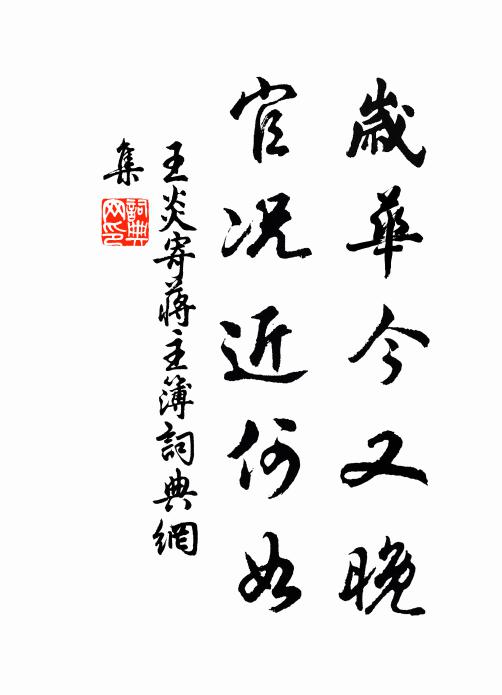 歲華今又晚
官况近何如
王炎寄蔣主簿詞典網
集
詞典
网印